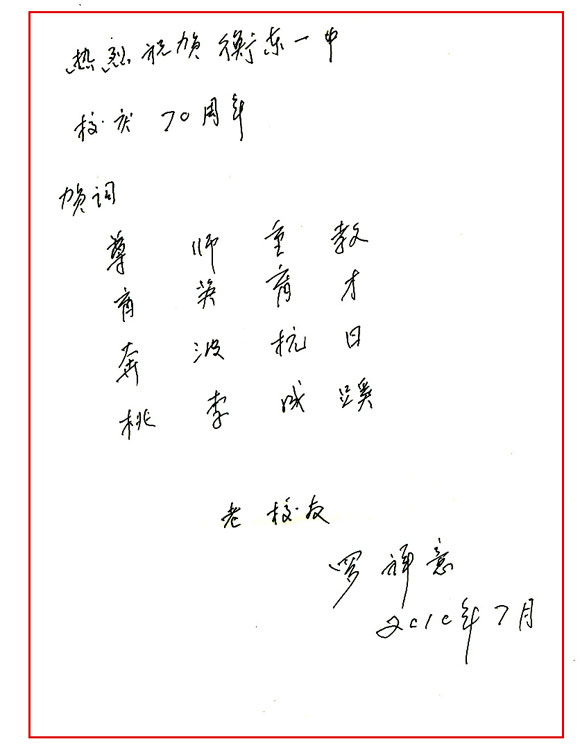 热烈祝贺衡东一中
校庆70周年
贺词
尊师重教
育英育才
奔波抗日
桃李成蹊
老校友
罗祥意
2010年7月